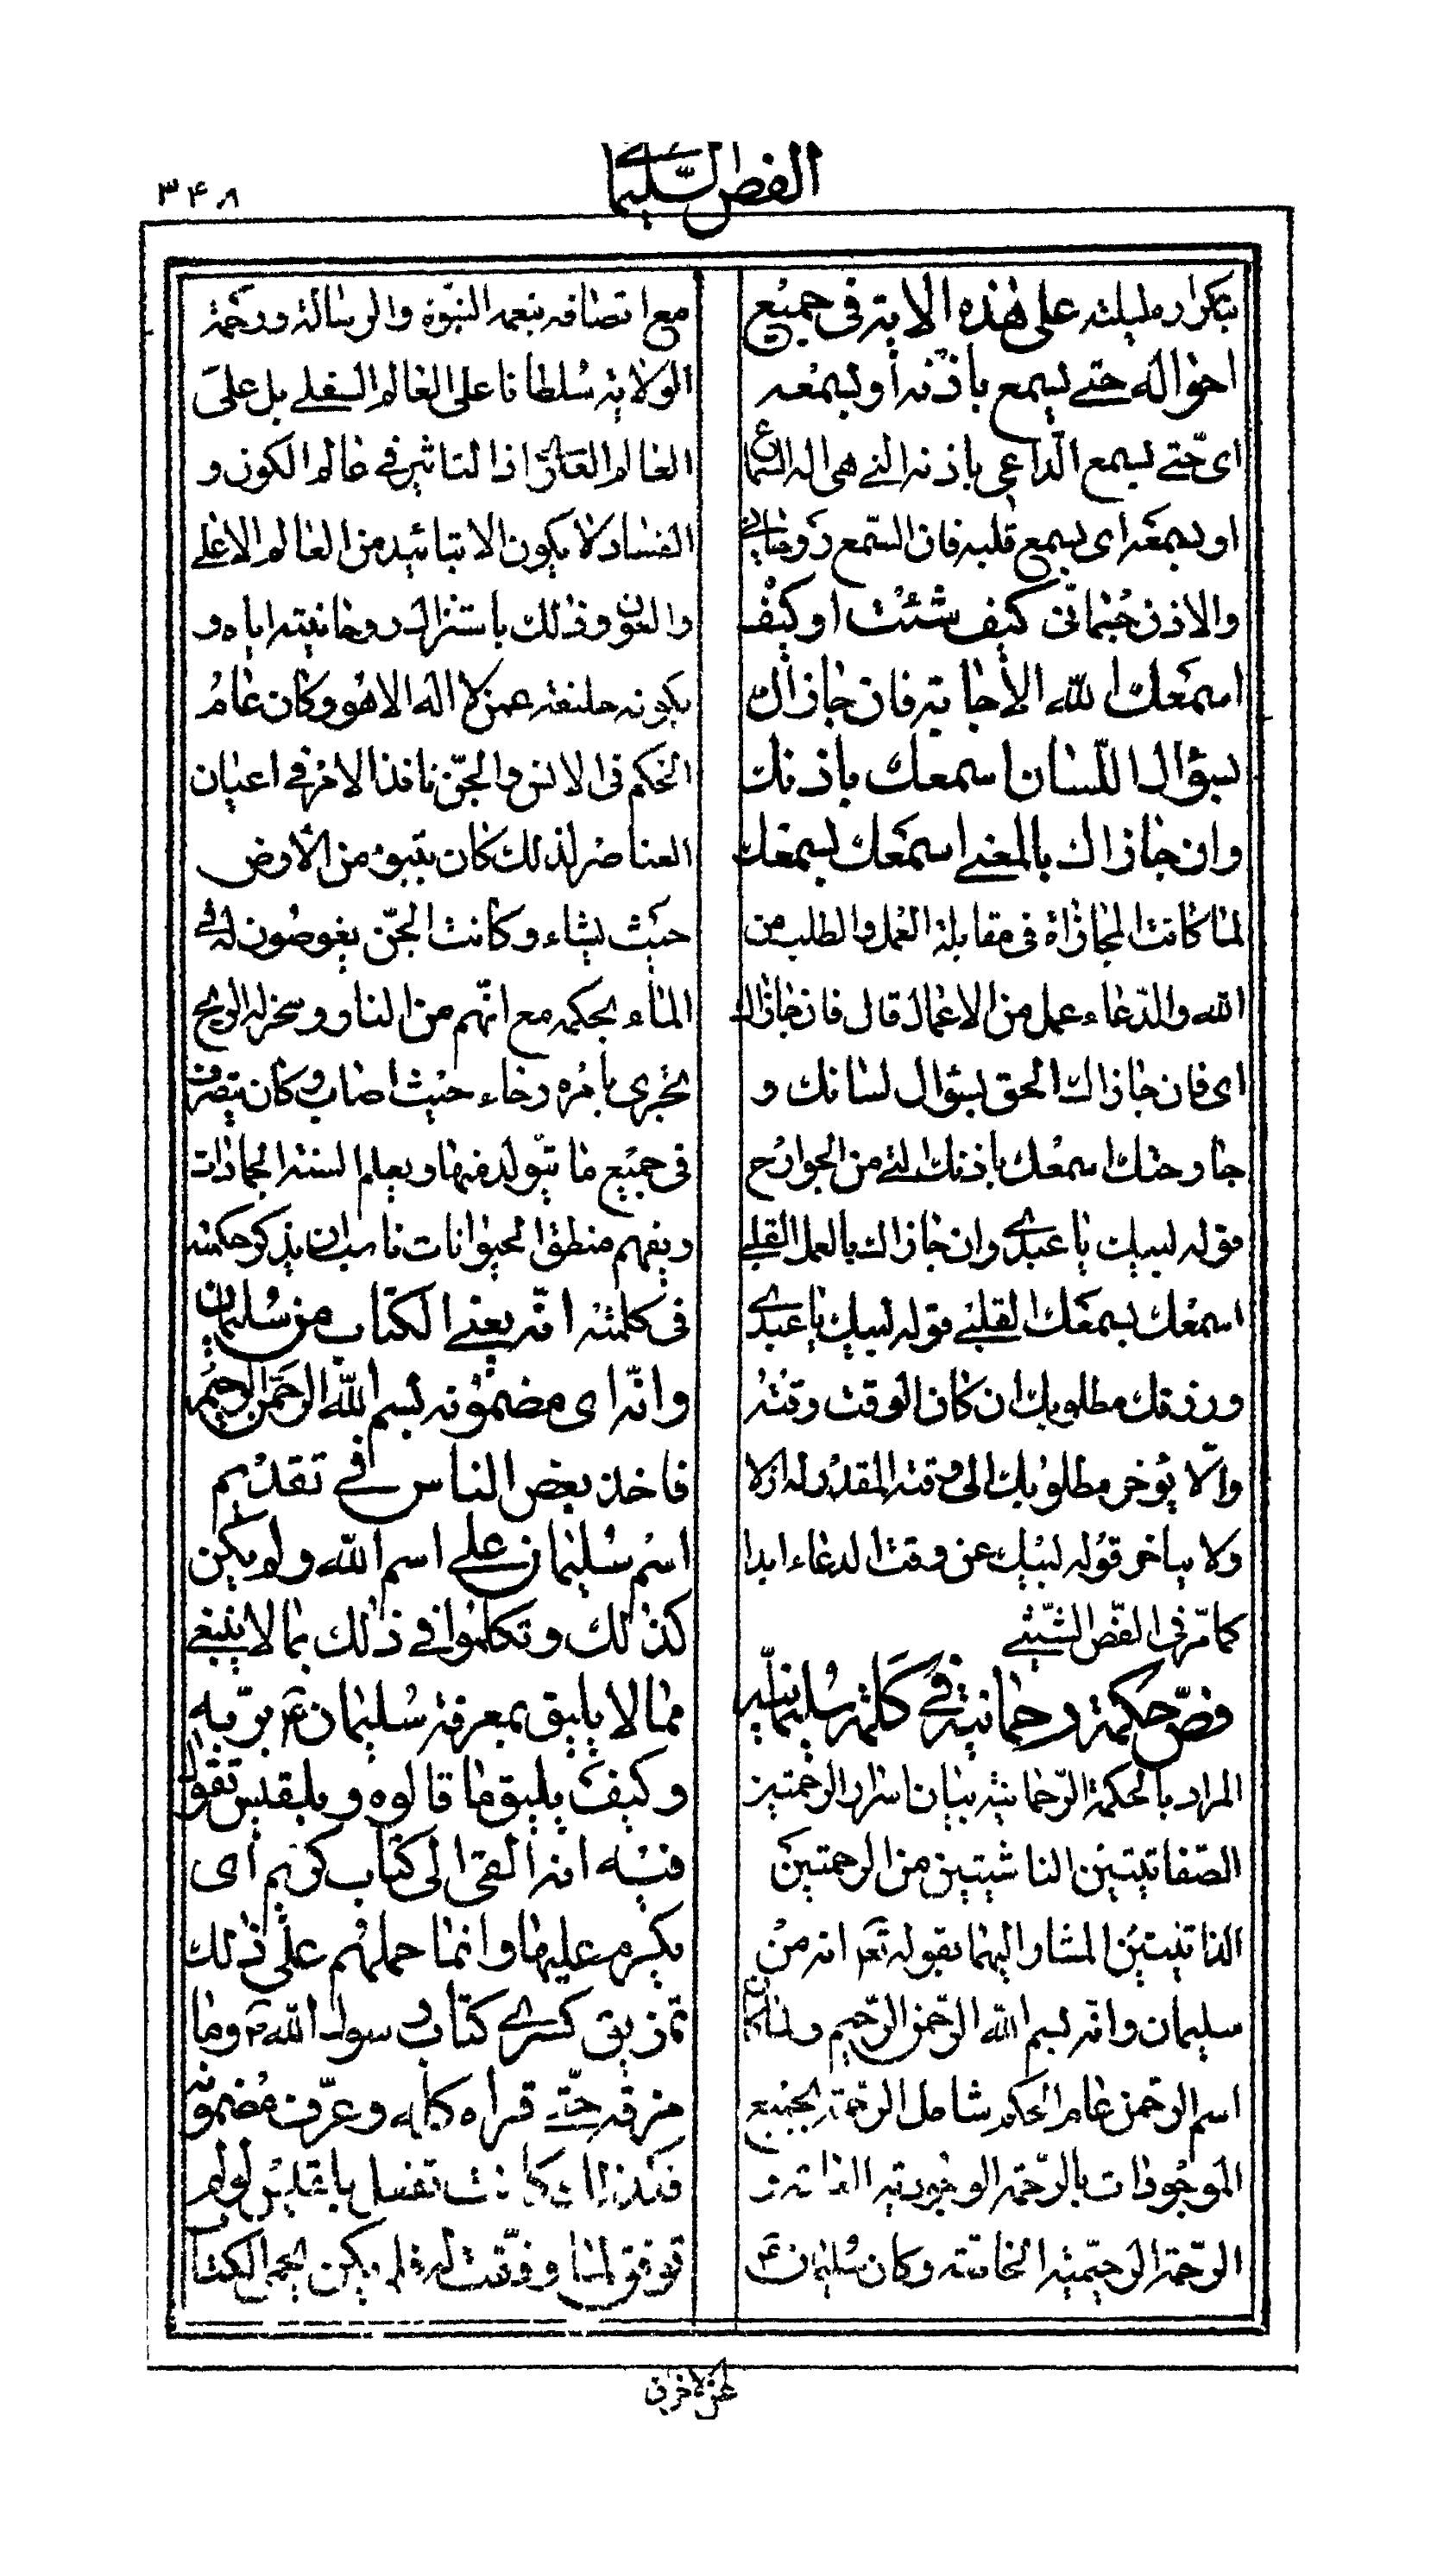 الفص السليماني
۳۴۸
بتكراره ليلته على هذه الاية في جميع
احواله حتى يسمع باذنه او بسمعه
اى حتى يسمع الداعى باذنه التى هى الة السماع
او بسمعه اى بسمع قلبه فان السمع روحانى
والاذن جسمانى كيف شئت او كيف
اسمعك الله الاجابة فان جازاك
بسؤال اللسان اسمعك باذنك
وان جازاك بالمعنى اسمعك بسمعك
لما كانت المجازاة فى مقابلة العمل والطلب من
الله والدعاء عمل من الاعمال قال فان جازاك
اى فان جازاك الحق بسؤال لسانك و
جارحتك اسمعك باذنك التى من الجوارح
قوله لبيك يا عبدى وان جازاك بالعمل القلبى
اسمعك بسمعك القلبى قوله لبيك يا عبدى
ورزقك مطلوبك ان كان الوقت وقته
والا يؤخر مطلوبك الى وقته المقدر له ازلا
ولا يتاخر قوله لبيك عن وقت الدعاء ابدا
كما مر فى الفص الشيثى
فص حكمة رحمانية فى كلمة سليمانية
المراد بالحكمة الرحمانية بيان اسرار الرحمتين
الصفاتيتين الناشيتين من الرحمتين
الذاتيتين المشار اليهما بقوله تعم انه من
سليمان وانه بسم الله الرحمن الرحيم ولما كان
اسم الرحمن عام الحكم شامل الرحمة لجميع
الموجودات بالرحمة الوجودية العامة و
الرحمة الرحيمية الخاصة وكان سليمان ع
مع اتصافه بنعمة النبوة والرسالة ورحمة
الولاية سلطانا على العالم السفلى بل على
العالم العلوى اذ التاثير فى عالم الكون و
الفساد لا يكون الا بتائيد من العالم الاعلى
والعون وذلك باستنزاله روحانيته اياه و
بكونه خليفة عمن لا اله الا هو وكان عام
الحكم فى الانس والجن نافذ الامر فى اعيان
العناصر لذلك كان يتبوء من الارض
حيث يشاء وكانت الجن يغوصون له فى
الماء بحكمه مع انهم من النار وسخر له الريح
تجرى بامره رخاء حيث اصاب وكان يتصرف
فى جميع ما يتولد فيها ويعلم السنة الجمادات
ويفهم منطق الحيوانات ناسب ان يذكر حكمته
فى كلمته انه يعنى الكتاب من سليمان
وانه اى مضمونه بسم الله الرحمن الرحيم
فاخذ بعض الناس فى تقديم
اسم سليمان على اسم الله ولم يكن
كذلك وتكلموا فى ذلك بما لا ينبغى
مما لا يليق بمعرفة سليمان ع بربه
وكيف يليق ما قالوه وبلقيس تقول
فيه انه القى الى كتاب كريم اى
يكرم عليها وانما حملهم على ذلك
تمزيق كسرى كتاب رسول الله ص وما
مزقه حتى قراه كله وعرف مضمونه
فكذلك كانت تفعل بلقيس لو لم
توفق لما وفقت له فلم يكن يحمى الكتاب